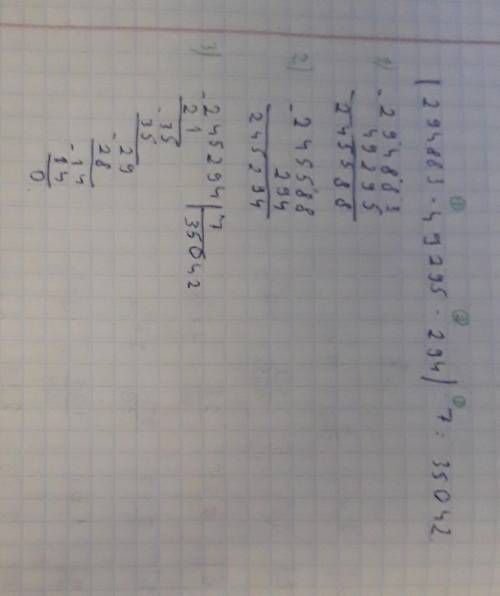 (294883 - 49295 - 294) 7 = 35042
① ② ③
1) - 294883
49295
245588
2) - 245588
294
245294
3) - 245294 | 7
21 | 35042
- 35
35
- 29
28
- 14
14
0